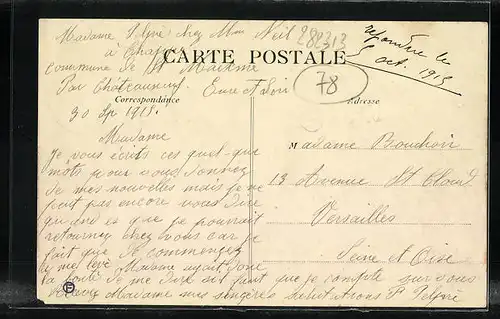 Madame chez Mme Neil
à
Commune de St Maixme
Par Châteauneuf. Eure et Loir
30 Sp 1915.
282313
repondre le
5 oct. 1915
CARTE POSTALE
78
Correspondance
Adresse
Madame
Je vous écrits ces quel-que
mots pour vous donnez
de mes nouvelles mais je ne
peut pas encore vous dire
quand et que je pourrait
retournez chez vous car je
fait que de commencez
de me levé Madame
la de me dire fait que je compte sur vous
Madame mes singères salutations
Madame Bouchon
13 Avenue St Cloud
Versailles
Seine et Oise